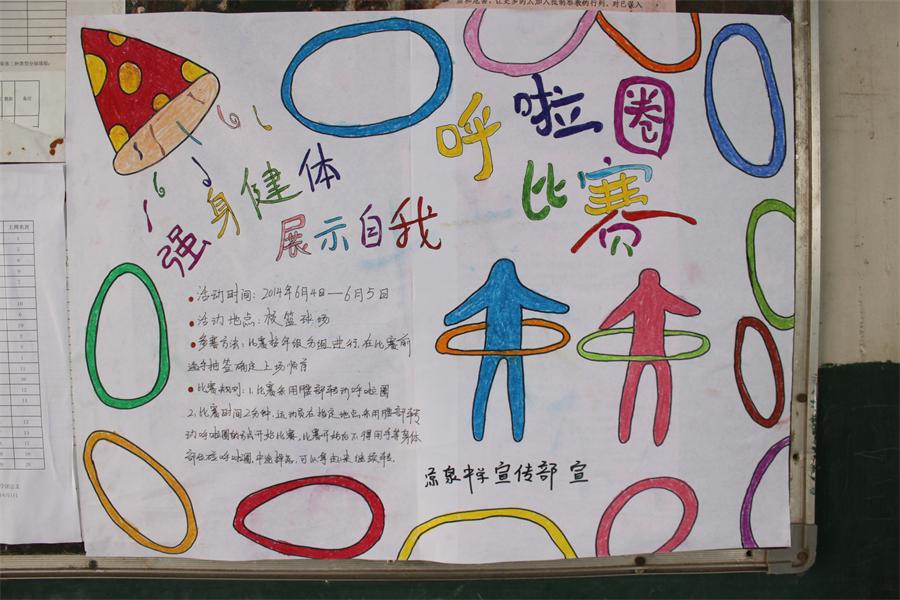 呼啦圈
比赛
强身健体
展示自我
活动时间：2014年6月4日—6月5日
活动地点：校篮球场
参赛方法：比赛按年级分组进行，在比赛前
选手抽签确定上场顺序
比赛规则：1.比赛采用腰部转动呼啦圈
2.比赛时间2分钟，运动员在指定地点采用腰部转
动呼啦圈的方式开始比赛，比赛开始后不得用手等身体
部位碰呼啦圈，中途掉落，可以拿起来继续转。
泉中学宣传部 宣